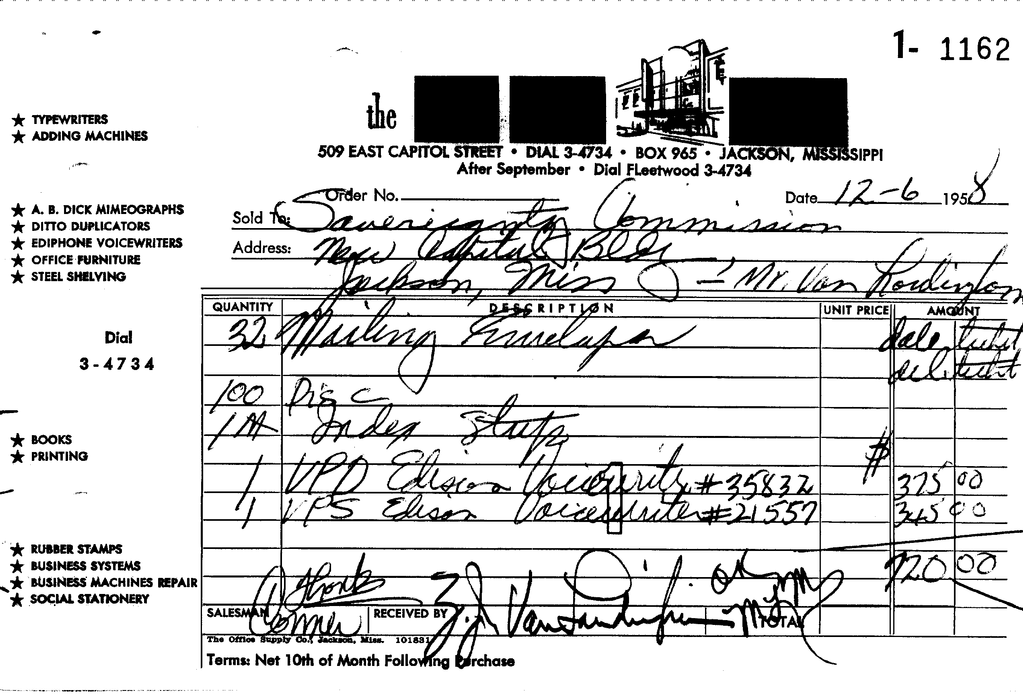 1- 1162
the
509 EAST CAPITOL STREET • DIAL 3-4734 • BOX 965 • JACKSON, MISSISSIPPI
After September • Dial FLeetwood 3-4734
★ TYPEWRITERS
★ ADDING MACHINES
★ A. B. DICK MIMEOGRAPHS
★ DITTO DUPLICATORS
★ EDIPHONE VOICEWRITERS
★ OFFICE FURNITURE
★ STEEL SHELVING
Dial
3-4734
★ BOOKS
★ PRINTING
★ RUBBER STAMPS
★ BUSINESS SYSTEMS
★ BUSINESS MACHINES REPAIR
★ SOCIAL STATIONERY
Order No. Date 12-6 1958
Sold To: Sovereignty Commission
Address: New Capital Bldg
Jackson, Miss Mr. Van
QUANTITY DESCRIPTION UNIT PRICE AMOUNT
32 Mailing Envelopes
100 Disc
1 M Index Strips
1 VPD Edison Voicewriter #35832 $ 375 00
1 VPS Edison Voicewriter #21557 345 00
720 00
Thanks
SALESMAN RECEIVED BY TOTAL
The Office Supply Co., Jackson, Miss. 101831
Terms: Net 10th of Month Following Purchase